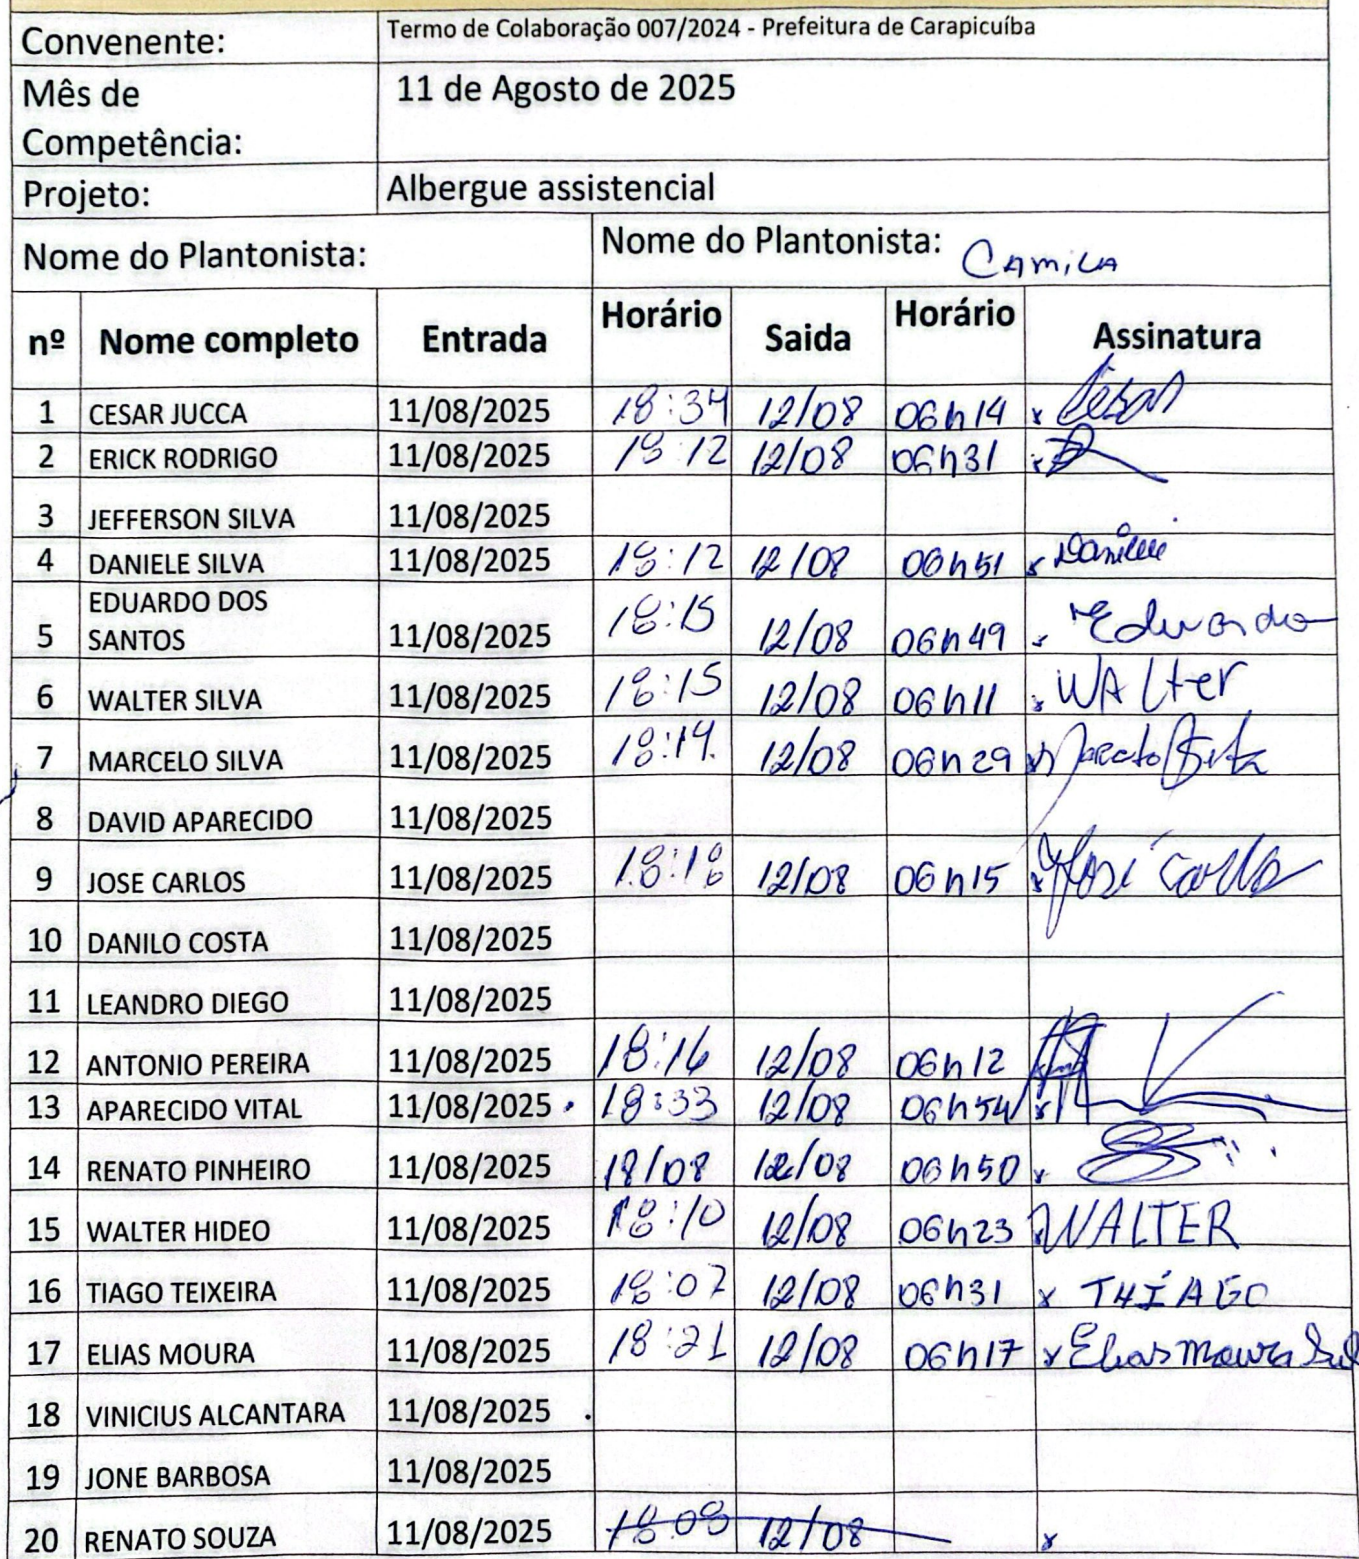 Convenente: Termo de Colaboração 007/2024 - Prefeitura de Carapicuíba
Mês de Competência: 11 de Agosto de 2025
Projeto: Albergue assistencial
Nome do Plantonista: Nome do Plantonista: CAMILA
nº Nome completo Entrada Horário Saida Horário Assinatura
1 CESAR JUCCA 11/08/2025 18:34 12/08 06h14 x Cesar
2 ERICK RODRIGO 11/08/2025 18:12 12/08 06h31 x
3 JEFFERSON SILVA 11/08/2025
4 DANIELE SILVA 11/08/2025 18:12 12/08 06h51 x Daniele
5 EDUARDO DOS SANTOS 11/08/2025 18:15 12/08 06h49 x Eduardo
6 WALTER SILVA 11/08/2025 18:15 12/08 06h11 x WALter
7 MARCELO SILVA 11/08/2025 18:14 12/08 06h29 x
8 DAVID APARECIDO 11/08/2025
9 JOSE CARLOS 11/08/2025 18:18 12/08 06h15 x José Carlos
10 DANILO COSTA 11/08/2025
11 LEANDRO DIEGO 11/08/2025
12 ANTONIO PEREIRA 11/08/2025 18:16 12/08 06h12
13 APARECIDO VITAL 11/08/2025 18:33 12/08 06h54 x
14 RENATO PINHEIRO 11/08/2025 18/08 12/08 06h50 x
15 WALTER HIDEO 11/08/2025 18:10 12/08 06h23 x WALTER
16 TIAGO TEIXEIRA 11/08/2025 18:07 12/08 06h31 x THÍAGO
17 ELIAS MOURA 11/08/2025 18:21 12/08 06h17 x Elias Moura
18 VINICIUS ALCANTARA 11/08/2025
19 JONE BARBOSA 11/08/2025
20 RENATO SOUZA 11/08/2025 18:08 12/08 x